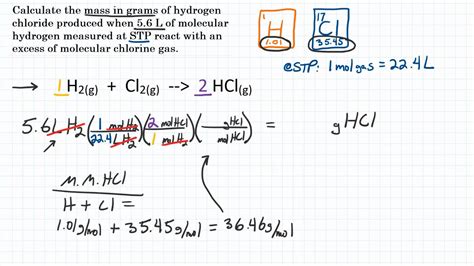 Calculate the mass in grams of hydrogen
chloride produced when 5.6 L of molecular
hydrogen measured at STP react with an
excess of molecular chlorine gas.
1
H
1.01
17
Cl
35.45
@STP: 1 mol gas = 22.4 L
→ 1H₂(g) + Cl₂(g) --> 2 HCl(g)
5.6L H₂ (1 mol H₂/22.4L H₂)(2 mol HCl/1 mol H₂)(g HCl/mol HCl) = g HCl
m.m. HCl
H + Cl =
1.01 g/mol + 35.45 g/mol = 36.46 g/mol